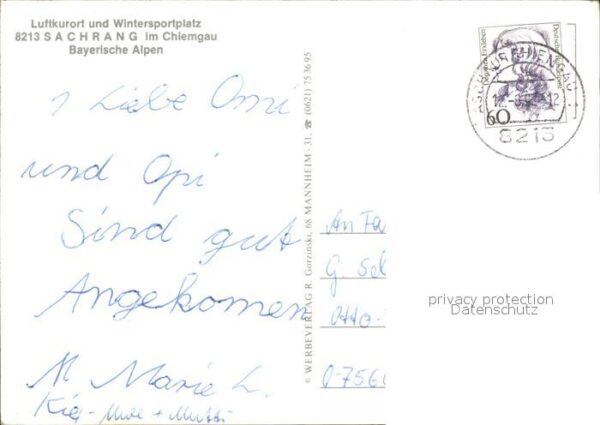 Luftkurort und Wintersportplatz
8213 SACHRANG im Chiemgau
Bayerische Alpen
Liebe Omi
und Opi
Sind gut
Angekomen
Marie L.
+ Mutti
© WERBEVERLAG R. Gorzinski, 68 MANNHEIM - 31, ☎ (0621) 75 36 95
An Fa
G. Sel
Otto-
D-7560
60
ASCHAU CHIEMGAU
8213
privacy protection
Datenschutz